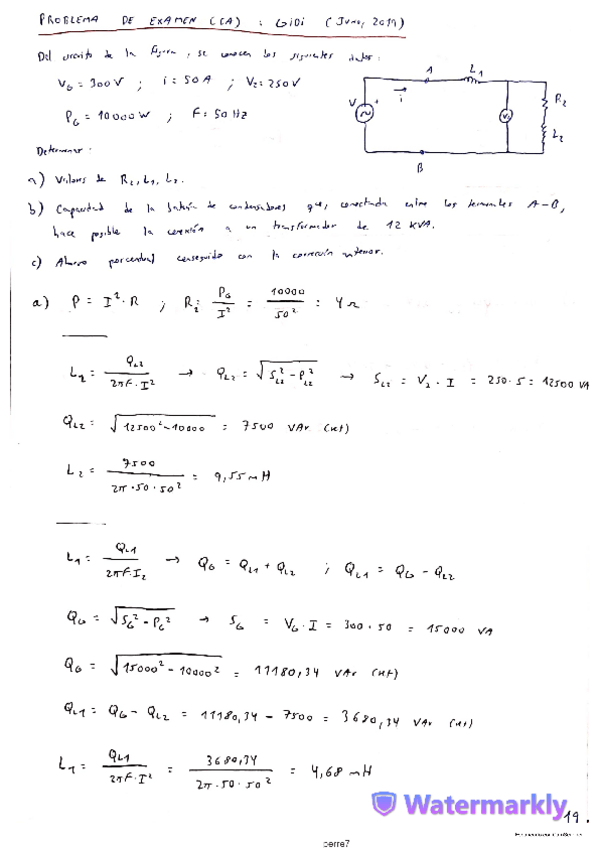 PROBLEMA DE EXAMEN (CA) : GIDI (JUNIO, 2019)
Del circuito de la figura, se conocen los siguientes datos:
VG = 300V ; i = 50A ; V2 = 250V
PG = 10000W ; F = 50Hz
A L1
V + i V2 R2
L2
B
Determinar:
a) Valores de R2, L1, L2.
b) Capacidad de la batería de condensadores que, conectada entre los terminales A-B,
hace posible la conexión a un transformador de 12 KVA.
c) Ahorro porcentual conseguido con la corrección anterior.
a) P = I² · R ; R2 = PG / I² = 10000 / 50² = 4 Ω
L2 = QL2 / 2πF·I² → QL2 = √(SL2² - PL2²) → SL2 = V2 · I = 250 · 5 = 12500 VA
QL2 = √(12500² - 10000) = 7500 VAr (ind)
L2 = 7500 / 2π · 50 · 50² = 9,55 mH
L1 = QL1 / 2πF·I2 → QG = QL1 + QL2 ; QL1 = QG - QL2
QG = √(SG² - PG²) → SG = VG · I = 300 · 50 = 15000 VA
QG = √(15000² - 10000²) = 11180,34 VAr (ind)
QL1 = QG - QL2 = 11180,34 - 7500 = 3680,34 VAr (ind)
L1 = QL1 / 2πF·I² = 3680,34 / 2π · 50 · 50² = 4,68 mH
Watermarkly
19.
perre7